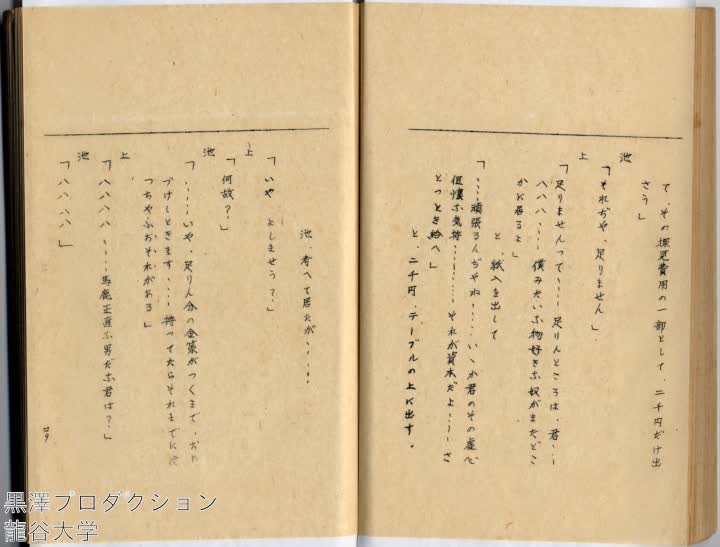 て、その探見費用の一部として、二千円だけ出
さう」
池
「それぢや、足りません」
上
「足りませんって、、、、足りんところは、君、、、
ハハハ、、、、僕みたいな物好きな奴がまだどこ
かに居るよ」
と、紙入を出して
「、、、、頑張るんぢやね、、、、いゝか君のその虚心
坦懐な気持、、、、、、、それが資本だよ、、、、さ
とっとき給へ」
と、二千円、テーブルの上に出す。
池、考へて居たが、、、、、
「いや よしませう？」
上
「何故？」
池
「、、、、いや、足りん分の金策がつくまで、おに
づけしときます、、、、持ってたらそれまでに使
っちやふおそれがある」
上
「ハハハハハ、、、、馬鹿正直な男だな君は？」
池
「ハハハハ」
四
黒澤プロダクション
龍谷大学